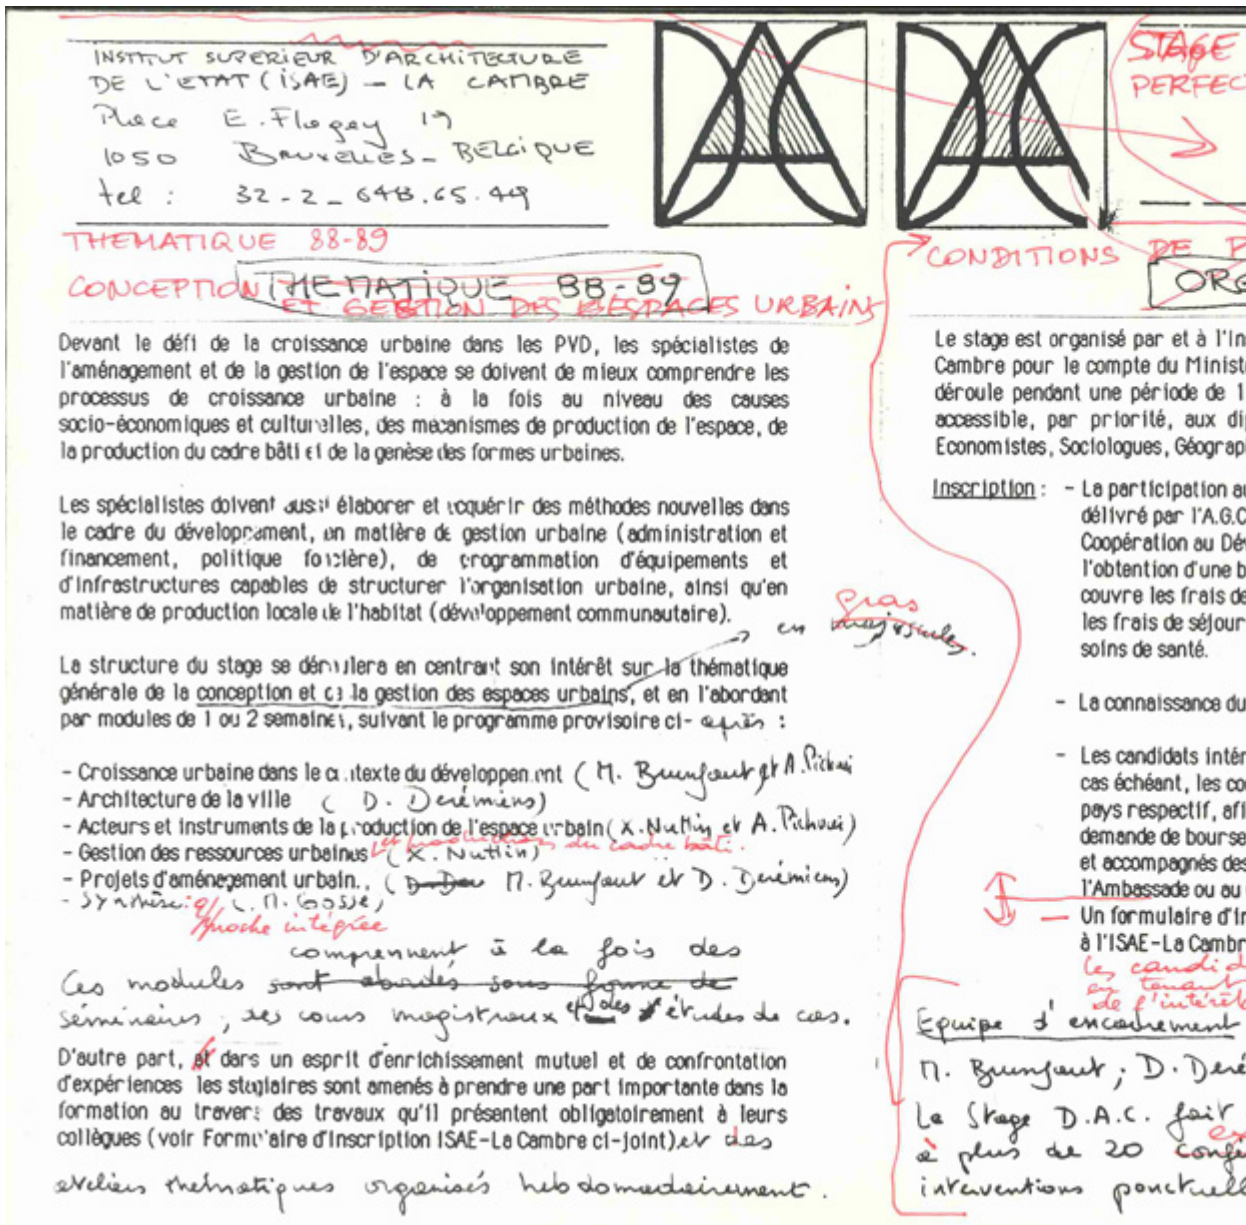 INSTITUT SUPERIEUR D'ARCHITECTURE
DE L'ETAT (ISAE) - LA CAMBRE
Place E. Flagey 19
1050 BRUXELLES - BELGIQUE
tel : 32-2-648.65.49
THEMATIQUE 88-89
CONCEPTION ET GESTION DES ESPACES URBAINS
THEMATIQUE 88-89
Devant le défi de la croissance urbaine dans les PVD, les spécialistes de
l'aménagement et de la gestion de l'espace se doivent de mieux comprendre les
processus de croissance urbaine : à la fois au niveau des causes
socio-économiques et culturelles, des mécanismes de production de l'espace, de
la production du cadre bâti et de la genèse des formes urbaines.
Les spécialistes doivent aussi élaborer et acquérir des méthodes nouvelles dans
le cadre du développement, en matière de gestion urbaine (administration et
financement, politique foncière), de programmation d'équipements et
d'infrastructures capables de structurer l'organisation urbaine, ainsi qu'en
matière de production locale de l'habitat (développement communautaire).
gras
en majuscules.
La structure du stage se déroulera en centrant son intérêt sur la thématique
générale de la conception et de la gestion des espaces urbains, et en l'abordant
par modules de 1 ou 2 semaines, suivant le programme provisoire ci- après :
- Croissance urbaine dans le contexte du développement (M. Brunfaut et A. Pichoui
- Architecture de la ville ( D. Derémiens)
- Acteurs et instruments de la production de l'espace urbain (X. Nuttin et A. Pichoui)
- Gestion des ressources urbaines et production du cadre bâti. (X. Nuttin)
- Projets d'aménagement urbain., ( M. Brunfaut et D. Derémiens)
- Synthèse : (M. Gosse)
intégrée
comprennent à la fois des
Ces modules sont abordés sous forme de
séminaires, des cours magistraux et des études de cas.
D'autre part, et dans un esprit d'enrichissement mutuel et de confrontation
d'expériences les stagiaires sont amenés à prendre une part importante dans la
formation au travers des travaux qu'il présentent obligatoirement à leurs
collègues (voir Formulaire d'inscription ISAE-La Cambre ci-joint), et des
ateliers thématiques organisés hebdomadairement.
STAGE
PERFEC
CONDITIONS DE P
ORG
Le stage est organisé par et à l'In
Cambre pour le compte du Ministè
déroule pendant une période de 1
accessible, par priorité, aux dip
Economistes, Sociologues, Géograp
Inscription : - La participation au
délivré par l'A.G.C
Coopération au Dév
l'obtention d'une b
couvre les frais de
les frais de séjour
soins de santé.
- La connaissance du
- Les candidats intér
cas échéant, les co
pays respectif, afi
demande de bourse
et accompagnés des
l'Ambassade ou au
- Un formulaire d'in
à l'ISAE-La Cambr
Les candid
en tenant
de l'intérêt
Equipe d'encadrement
M. Brunfaut ; D. Deré
Le Stage D.A.C. fait
à plus de 20 confé
interventions ponctuell